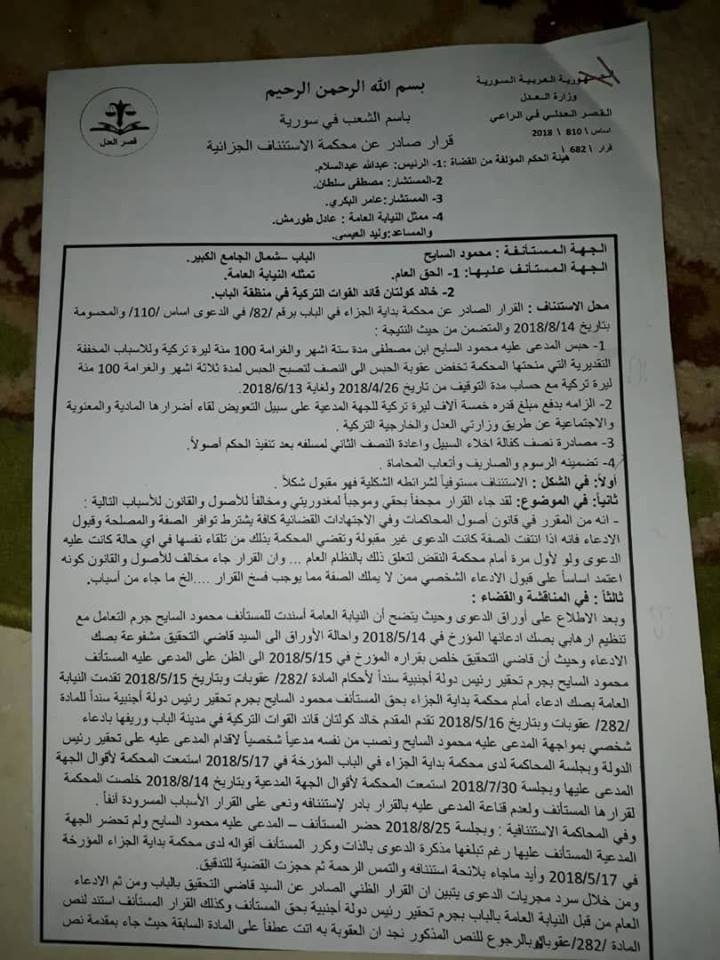 بسم الله الرحمن الرحيم
باسم الشعب في سورية
قرار صادر عن محكمة الاستئناف الجزائية
الجمهورية العربية السورية
وزارة العدل
القصر العدلي في الراعي
اساس \ 810 \ 2018
قرار \ 682 \
قصر العدل
هيئة الحكم المؤلفة من القضاة :1- الرئيس: عبدالله عبدالسلام.
2-المستشار: مصطفى سلطان.
3- المستشار:عامر البكري.
4- ممثل النيابة العامة : عادل طورمش.
والمساعد:وليد العيسى.
الجهة المستأنفة : محمود السايح الباب –شمال الجامع الكبير.
الجهة المستأنف عليها: 1- الحق العام. تمثله النيابة العامة.
2- خالد كولتان قائد القوات التركية في منظقة الباب.
محل الاستئناف : القرار الصادر عن محكمة بداية الجزاء في الباب برقم /82/ في الدعوى اساس /110/ والمحسومة
بتاريخ 2018/8/14 والمتضمن من حيث النتيجة :
1- حبس المدعى عليه محمود السايح ابن مصطفى مدة ستة اشهر والغرامة 100 مئة ليرة تركية وللاسباب المخففة
التقديرية التي منحتها المحكمة تخفض عقوبة الحبس الى النصف لتصبح الحبس لمدة ثلاثة اشهر والغرامة 100 مئة
ليرة تركية مع حساب مدة التوقيف من تاريخ 2018/4/26 ولغاية 2018/6/13.
2- الزامه بدفع مبلغ قدره خمسة آلاف ليرة تركية للجهة المدعية على سبيل التعويض لقاء أضرارها المادية والمعنوية
والاجتماعية عن طريق وزارتي العدل والخارجية التركية .
3- مصادرة نصف كفالة اخلاء السبيل واعادة النصف الثاني لمسلفه بعد تنفيذ الحكم أصولاً.
4- تضمينه الرسوم والصاريف وأتعاب المحاماة .
أولاً: في الشكل : الاستئناف مستوفياً لشرائطه الشكلية فهو مقبول شكلاً .
ثانياً: في الموضوع: لقد جاء القرار مجحفاً بحقي وموجباً لمغدوريتي ومخالفاً للأصول والقانون للأسباب التالية :
- انه من المقرر في قانون أصول المحاكمات وفي الاجتهادات القضائية كافة يشترط توافر الصفة والمصلحة وقبول
الادعاء فانه اذا انتفت الصفة كانت الدعوى غير مقبولة وتقضي المحكمة بذلك من تلقاء نفسها في اي حالة كانت عليه
الدعوى ولو لأول مرة أمام محكمة النقض لتعلق ذلك بالنظام العام ... وان القرار جاء مخالف للأصول والقانون كونه
اعتمد اساساً على قبول الادعاء الشخصي ممن لا يملك الصفة مما يوجب فسخ القرار ....الخ ما جاء من أسباب.
ثالثاً : في المناقشة والقضاء :
وبعد الاطلاع على أوراق الدعوى وحيث يتضح أن النيابة العامة أسندت للمستأنف محمود السايح جرم التعامل مع
تنظيم ارهابي بصك ادعائها المؤرخ في 2018/5/14 واحالة الاوراق الى السيد قاضي التحقيق مشفوعة بصك
الادعاء وحيث أن قاضي التحقيق خلص بقراره المؤرخ في 2018/5/15 الى الظن على المدعى عليه المستأنف
محمود السايح بجرم تحقير رئيس دولة أجنبية سنداً لأحكام المادة /282/ عقوبات وبتاريخ 2018/5/15 تقدمت النيابة
العامة بصك ادعاء أمام محكمة بداية الجزاء بحق المستأنف محمود السايح بجرم تحقير رئيس دولة أجنبية سنداً للمادة
/282/ عقوبات وبتاريخ 2018/5/16 تقدم المقدم خالد كولتان قائد القوات التركية في مدينة الباب وريفها بادعاء
شخصي بمواجهة المدعى عليه محمود السايح ونصب من نفسه مدعياً شخصياً لاقدام المدعى عليه على تحقير رئيس
الدولة وبجلسة المحاكمة لدى محكمة بداية الجزاء في الباب المؤرخة في 2018/5/17 استمعت المحكمة لأقوال الجهة
المدعى عليها وبجلسة 2018/7/30 استمعت المحكمة لأقوال الجهة المدعية وبتاريخ 2018/8/14 خلصت المحكمة
لقرارها المستأنف ولعدم قناعة المدعى عليه بالقرار بادر لإستئنافه ونعى على القرار الأسباب المسرودة آنفاً .
وفي المحاكمة الاستئنافية : وبجلسة 2018/8/25 حضر المستأنف – المدعى عليه محمود السايح ولم تحضر الجهة
المدعية المستأنف عليها رغم تبلغها مذكرة الدعوى بالذات وكرر المستأنف أقواله لدى محكمة بداية الجزاء المؤرخة
في 2018/5/17 وأيد ماجاء بلائحة استئنافه والتمس الرحمة ثم حجزت القضية للتدقيق.
ومن خلال سرد مجريات الدعوى يتبين ان القرار الظني الصادر عن السيد قاضي التحقيق بالباب ومن ثم الادعاء
العام من قبل النيابة العامة بالباب بجرم تحقير رئيس دولة أجنبية بحق المستأنف وكذلك القرار المستأنف استند لنص
المادة /282/عقوبات وبالرجوع للنص المذكور نجد ان العقوبة به اتت عطفاً على المادة السابقة حيث جاء بمقدمة نص